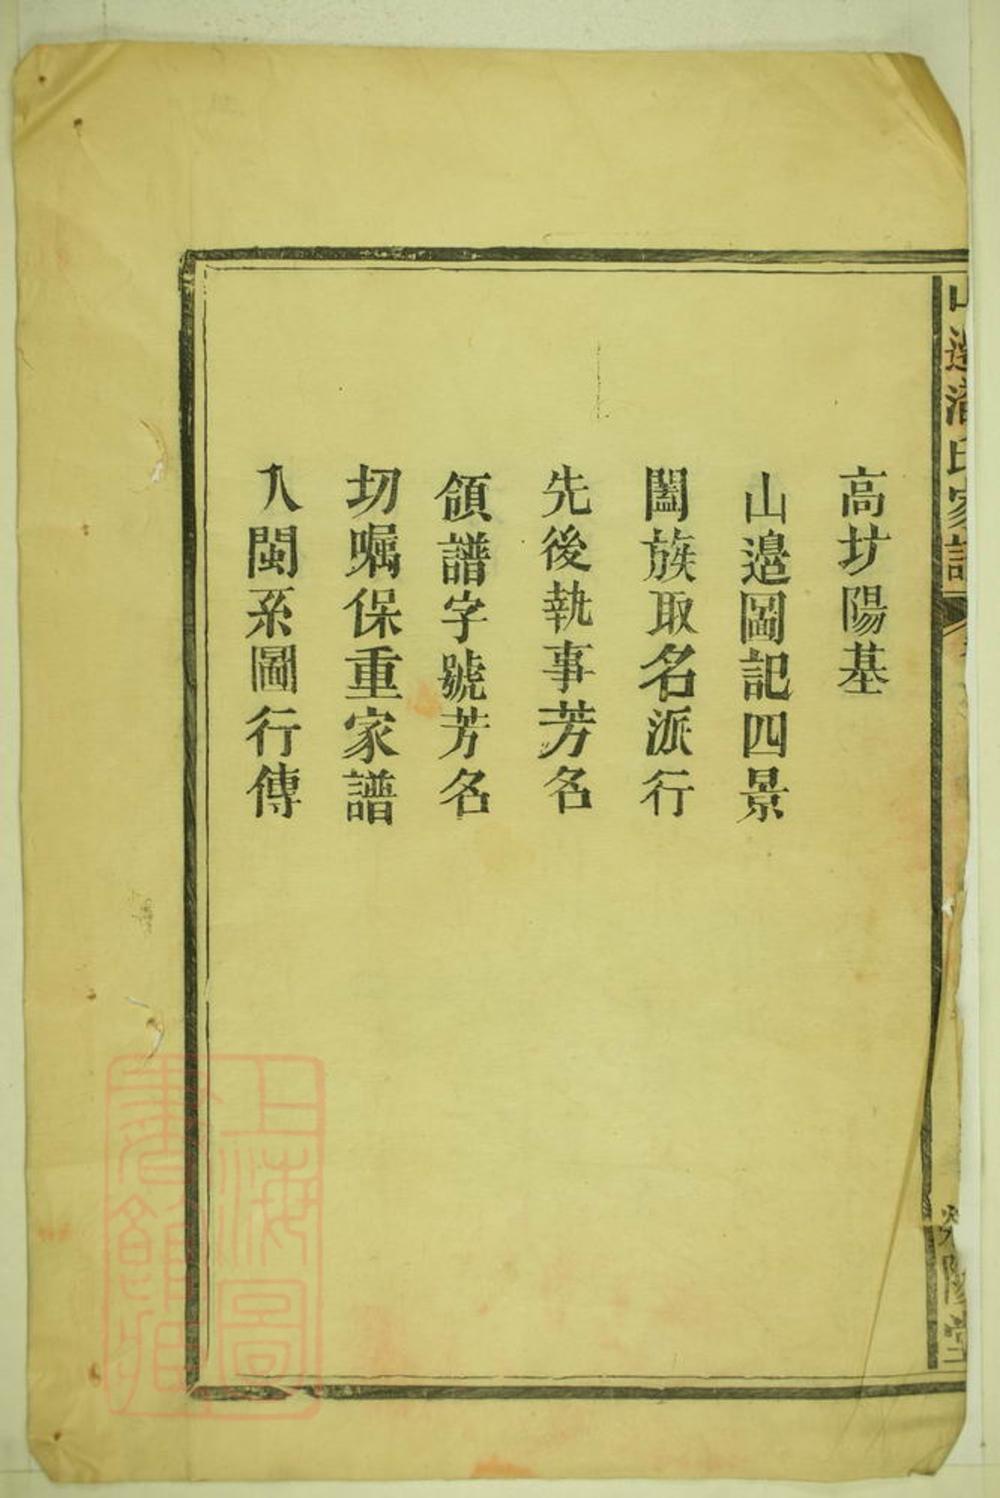 高坊陽基
山邉圖記四景
闔族取名派行
先後執事芳名
領譜字號芳名
切嘱保重家譜
入閩系圖行傳
山邉潘氏家譜
滎陽堂
上海圖
書館藏